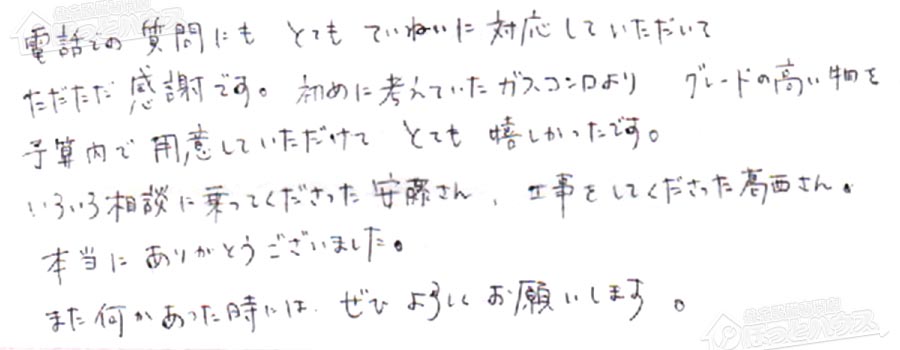 電話での質問にも とても ていねいに 対応していただいて
ただただ 感謝です。 初めに考えていたガスコンロより グレードの高い物を
予算内で 用意していただけて とても 嬉しかったです。
いろいろ相談に乗ってくださった安藤さん、工事をしてくださった葛西さん。
本当に ありがとうございました。
また何かあった時には ぜひ よろしく お願いします。
ほっとハウス